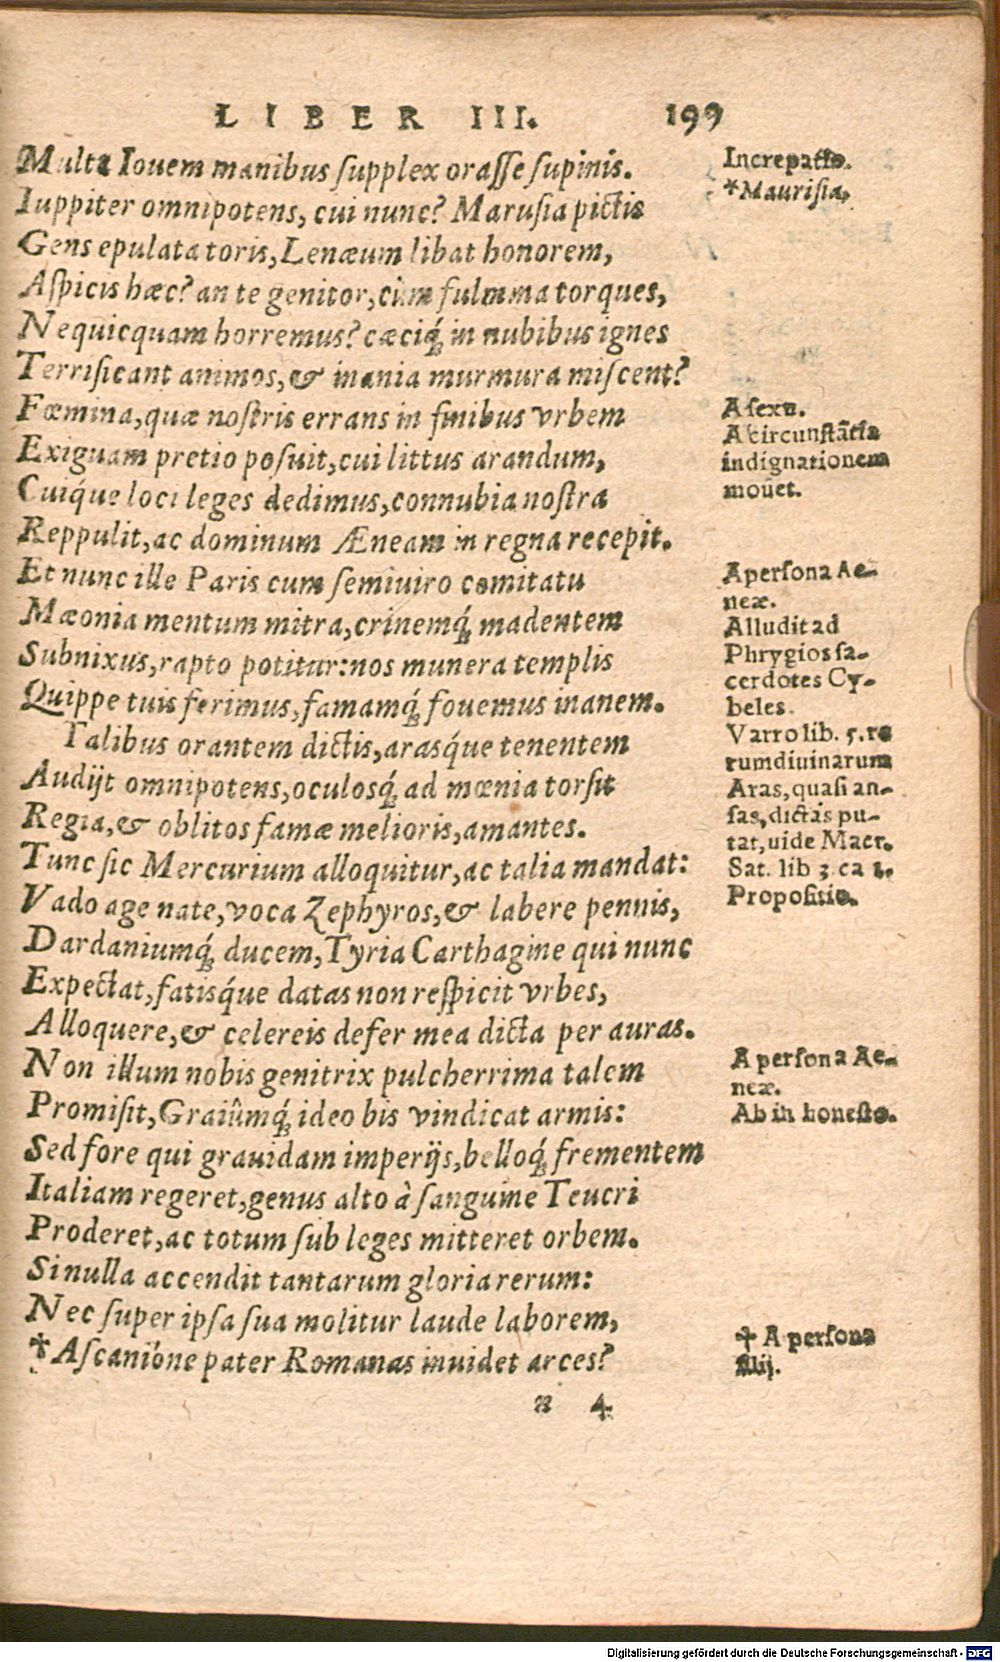 LIBER III. 199
Multa Iouem manibus supplex orasse supinis.
Iuppiter omnipotens, cui nunc? Marusia pictis
Gens epulata toris, Lenæum libat honorem,
Aspicis hæc? an te genitor, cùm fulmina torques,
Nequicquam horremus? cæciq́; in nubibus ignes
Terrificant animos, & inania murmura miscent?
Fœmina, quæ nostris errans in finibus vrbem
Exiguam pretio posuit, cui littus arandum,
Cuiq́ue loci leges dedimus, connubia nostra
Reppulit, ac dominum Æneam in regna recepit.
Et nunc ille Paris cum semiuiro comitatu
Mæonia mentum mitra, crinemq́; madentem
Subnixus, rapto potitur: nos munera templis
Quippe tuis ferimus, famamq́; fouemus inanem.
Talibus orantem dictis, arasq́ue tenentem
Audijt omnipotens, oculosq́; ad mœnia torsit
Regia, & oblitos famæ melioris, amantes.
Tunc sic Mercurium alloquitur, ac talia mandat:
Vado age nate, voca Zephyros, & labere pennis,
Dardaniumq́; ducem, Tyria Carthagine qui nunc
Expectat, fatisq́ue datas non respicit vrbes,
Alloquere, & celereis defer mea dicta per auras.
Non illum nobis genitrix pulcherrima talem
Promisit, Graiûmq́; ideo bis vindicat armis:
Sed fore qui grauidam imperijs, belloq́; frementem
Italiam regeret, genus alto à sanguine Teucri
Proderet, ac totum sub leges mitteret orbem.
Si nulla accendit tantarum gloria rerum:
Nec super ipsa sua molitur laude laborem,
✝Ascanióne pater Romanas inuidet arces?
n 4
Increpatio.
*Maurisia.
A sexu.
A circunstãtia
indignationem
mouet.
A persona Ae-
neæ.
Alludit ad
Phrygios sa-
cerdotes Cy-
beles.
Varro lib. 5. re
rum diuinarum
Aras, quasi an-
sas, dictas pu-
tat, uide Macr.
Sat. lib 3. ca 2.
Propositio.
A persona Ae-
neæ.
Ab in honesto.
✝ A persona
filij.
Digitalisierung gefördert durch die Deutsche Forschungsgemeinschaft - DFG